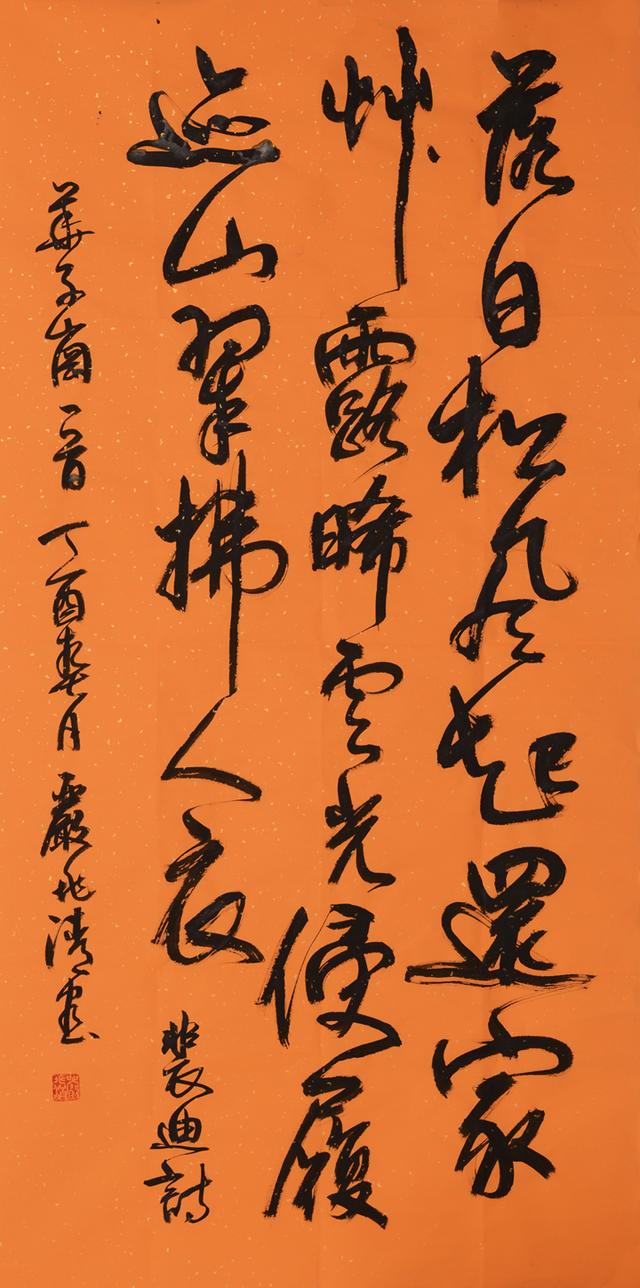 落日松風起還家
艸露晞雲光侵履
迹山翠拂人衣 裴迪詩
華子崗一首 丁酉春月 嚴兆清書